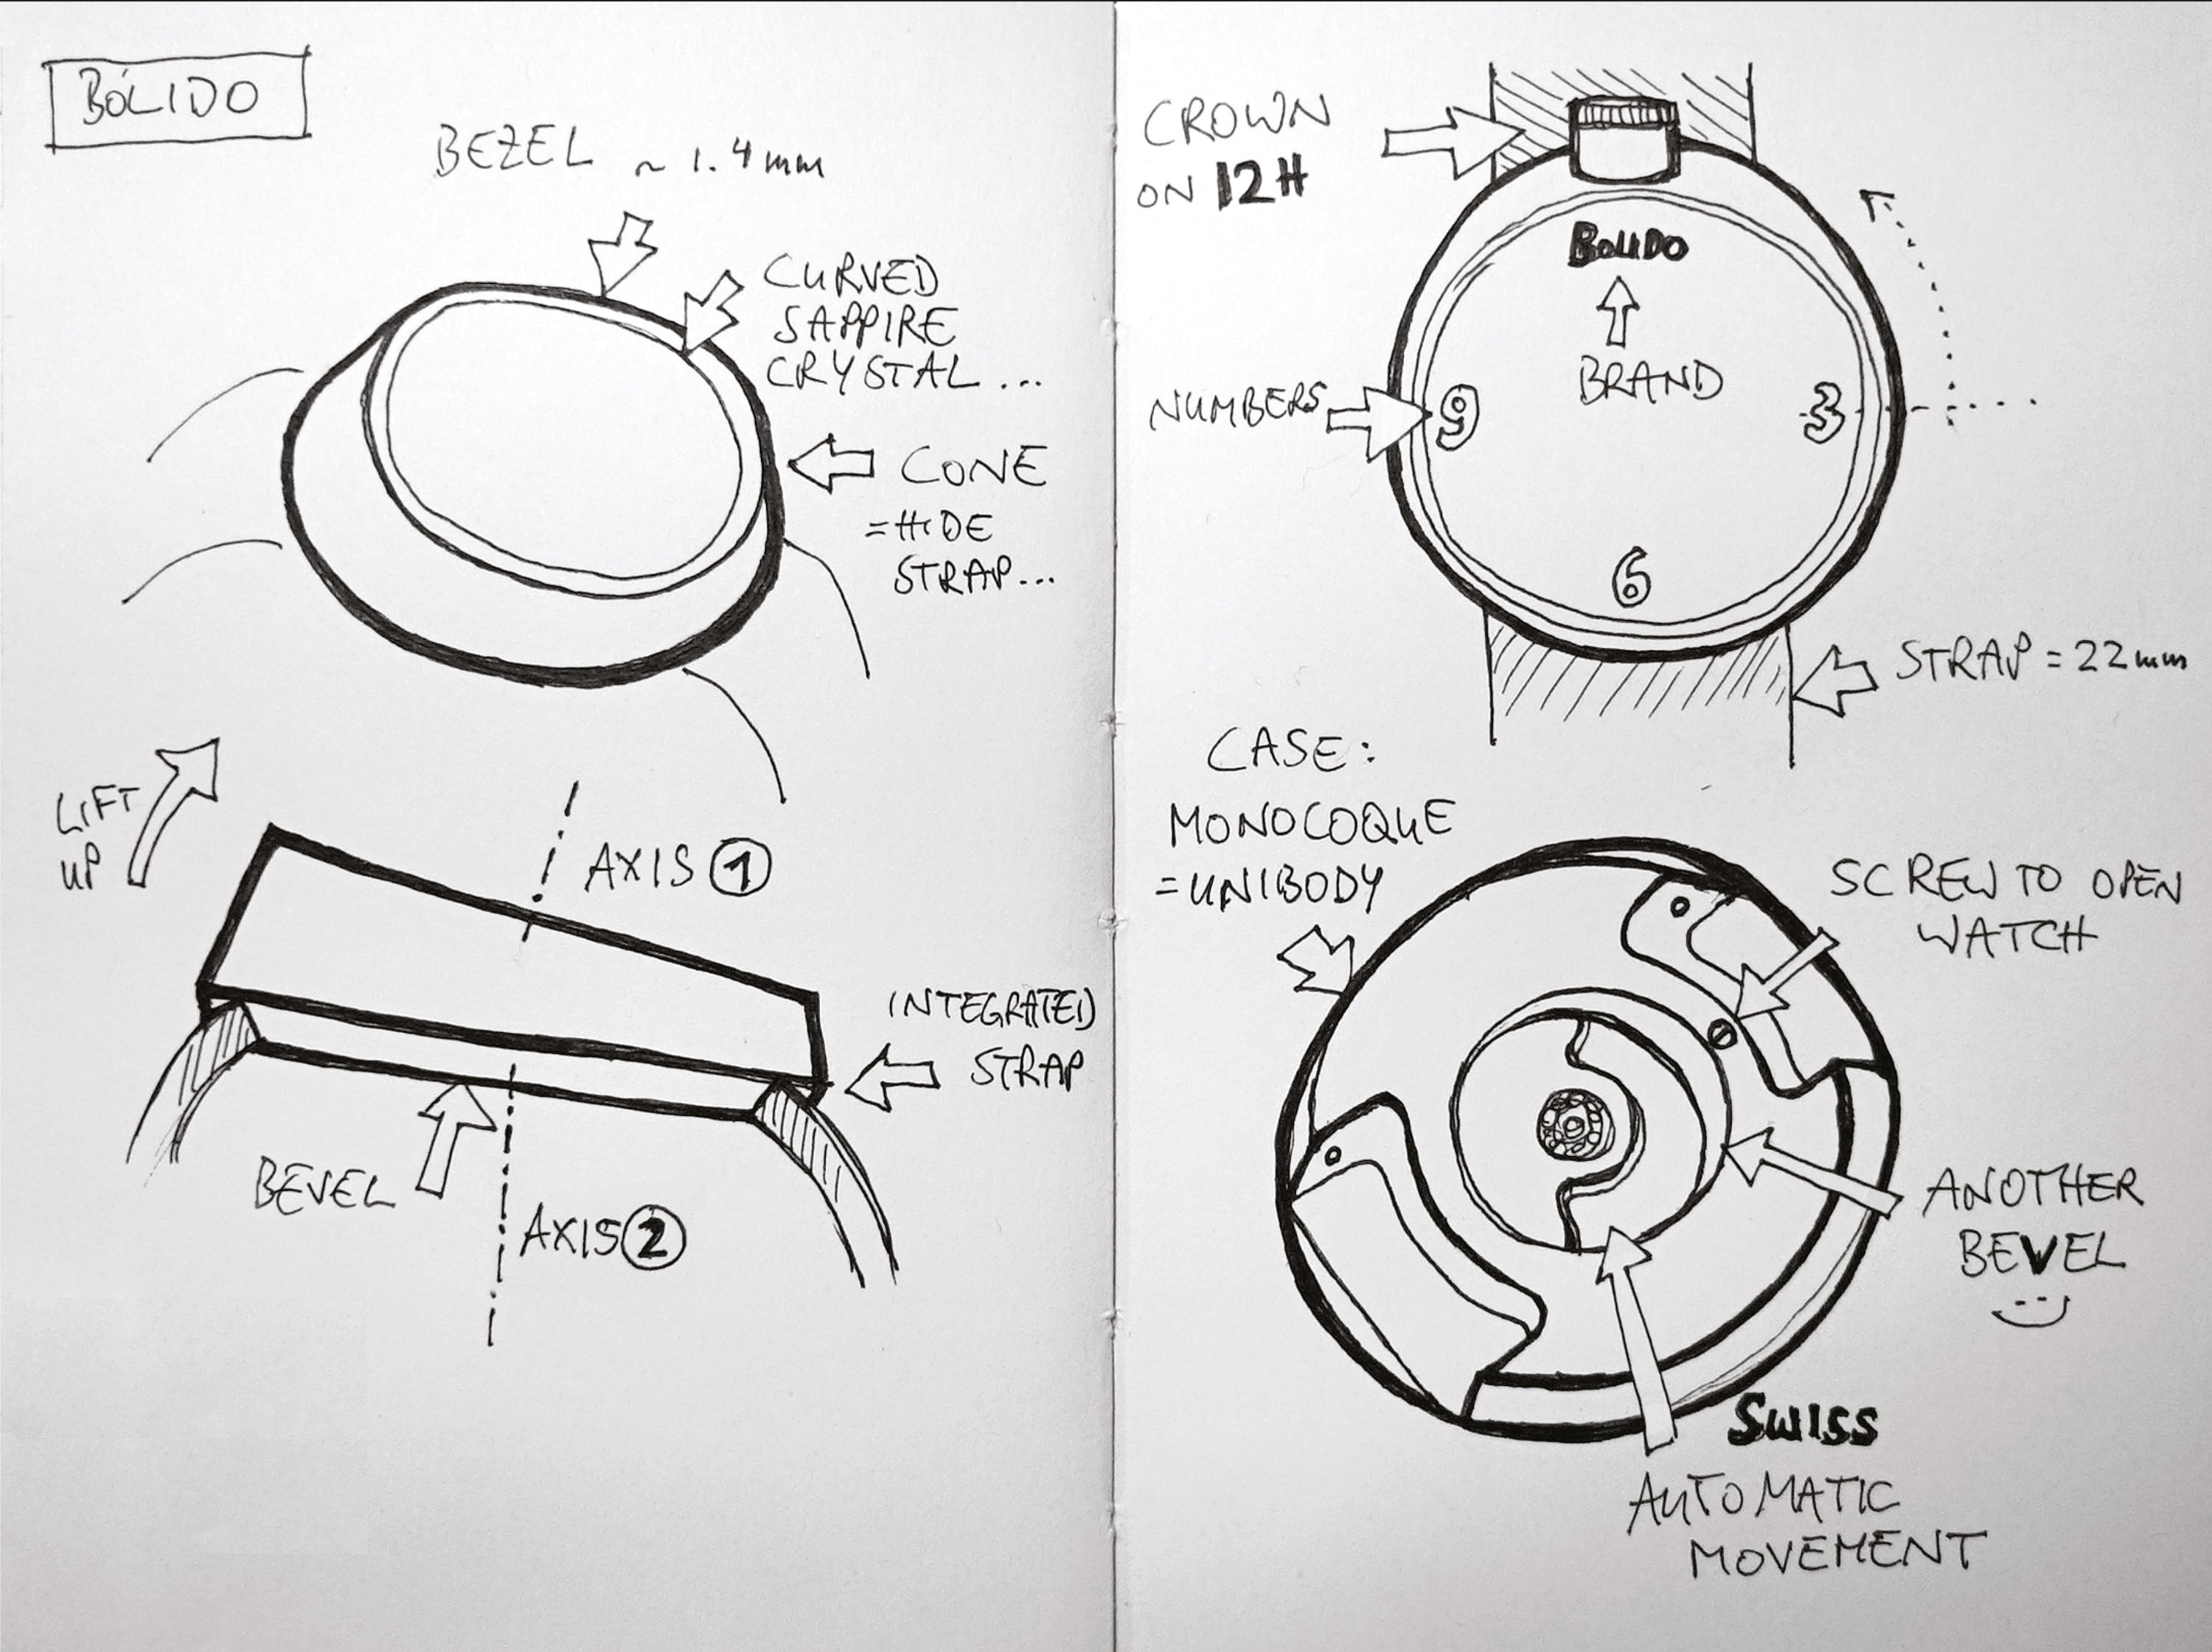 BÓLIDO
BEZEL ~ 1.4mm
CURVED
SAPPIRE
CRYSTAL ...
CONE
=HIDE
STRAP...
LIFT
UP
AXIS 1
INTEGRATED
STRAP
BEVEL
AXIS 2
CROWN
ON 12H
BOLIDO
BRAND
NUMBERS
9
3
6
STRAP = 22mm
CASE:
MONOCOQUE
=UNIBODY
SCREW TO OPEN
WATCH
ANOTHER
BEVEL
SWISS
AUTOMATIC
MOVEMENT